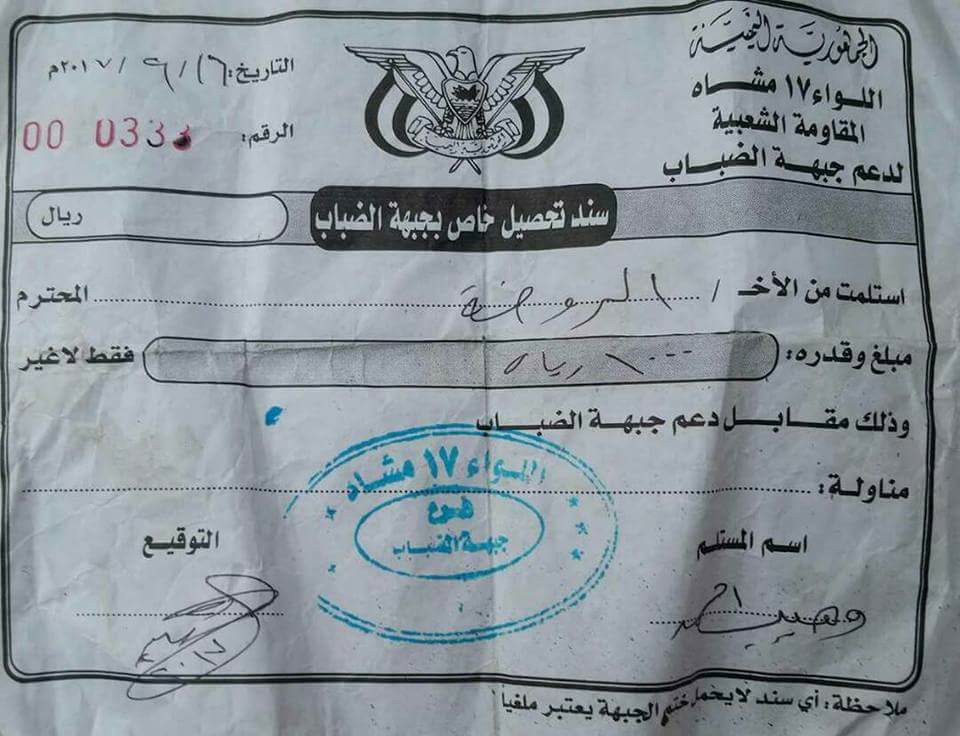 الجمهورية اليمنية
اللواء ١٧ مشاه
المقاومة الشعبية
لدعم جبهة الضباب
التاريخ: ١٦ / ٩ / ٢٠١٧م
الرقم: 00 0333
سند تحصيل خاص بجبهة الضباب
ريال
استلمت من الأخ / الروضة المحترم
مبلغ وقدره: ١٠٠٠ ريال فقط لاغير
وذلك مقابل دعم جبهة الضباب
مناولة:
اللواء ١٧ مشاه
جبهة الضباب
اسم المستلم
التوقيع
ملاحظة: أي سند لا يحمل ختم الجبهة يعتبر ملغياً